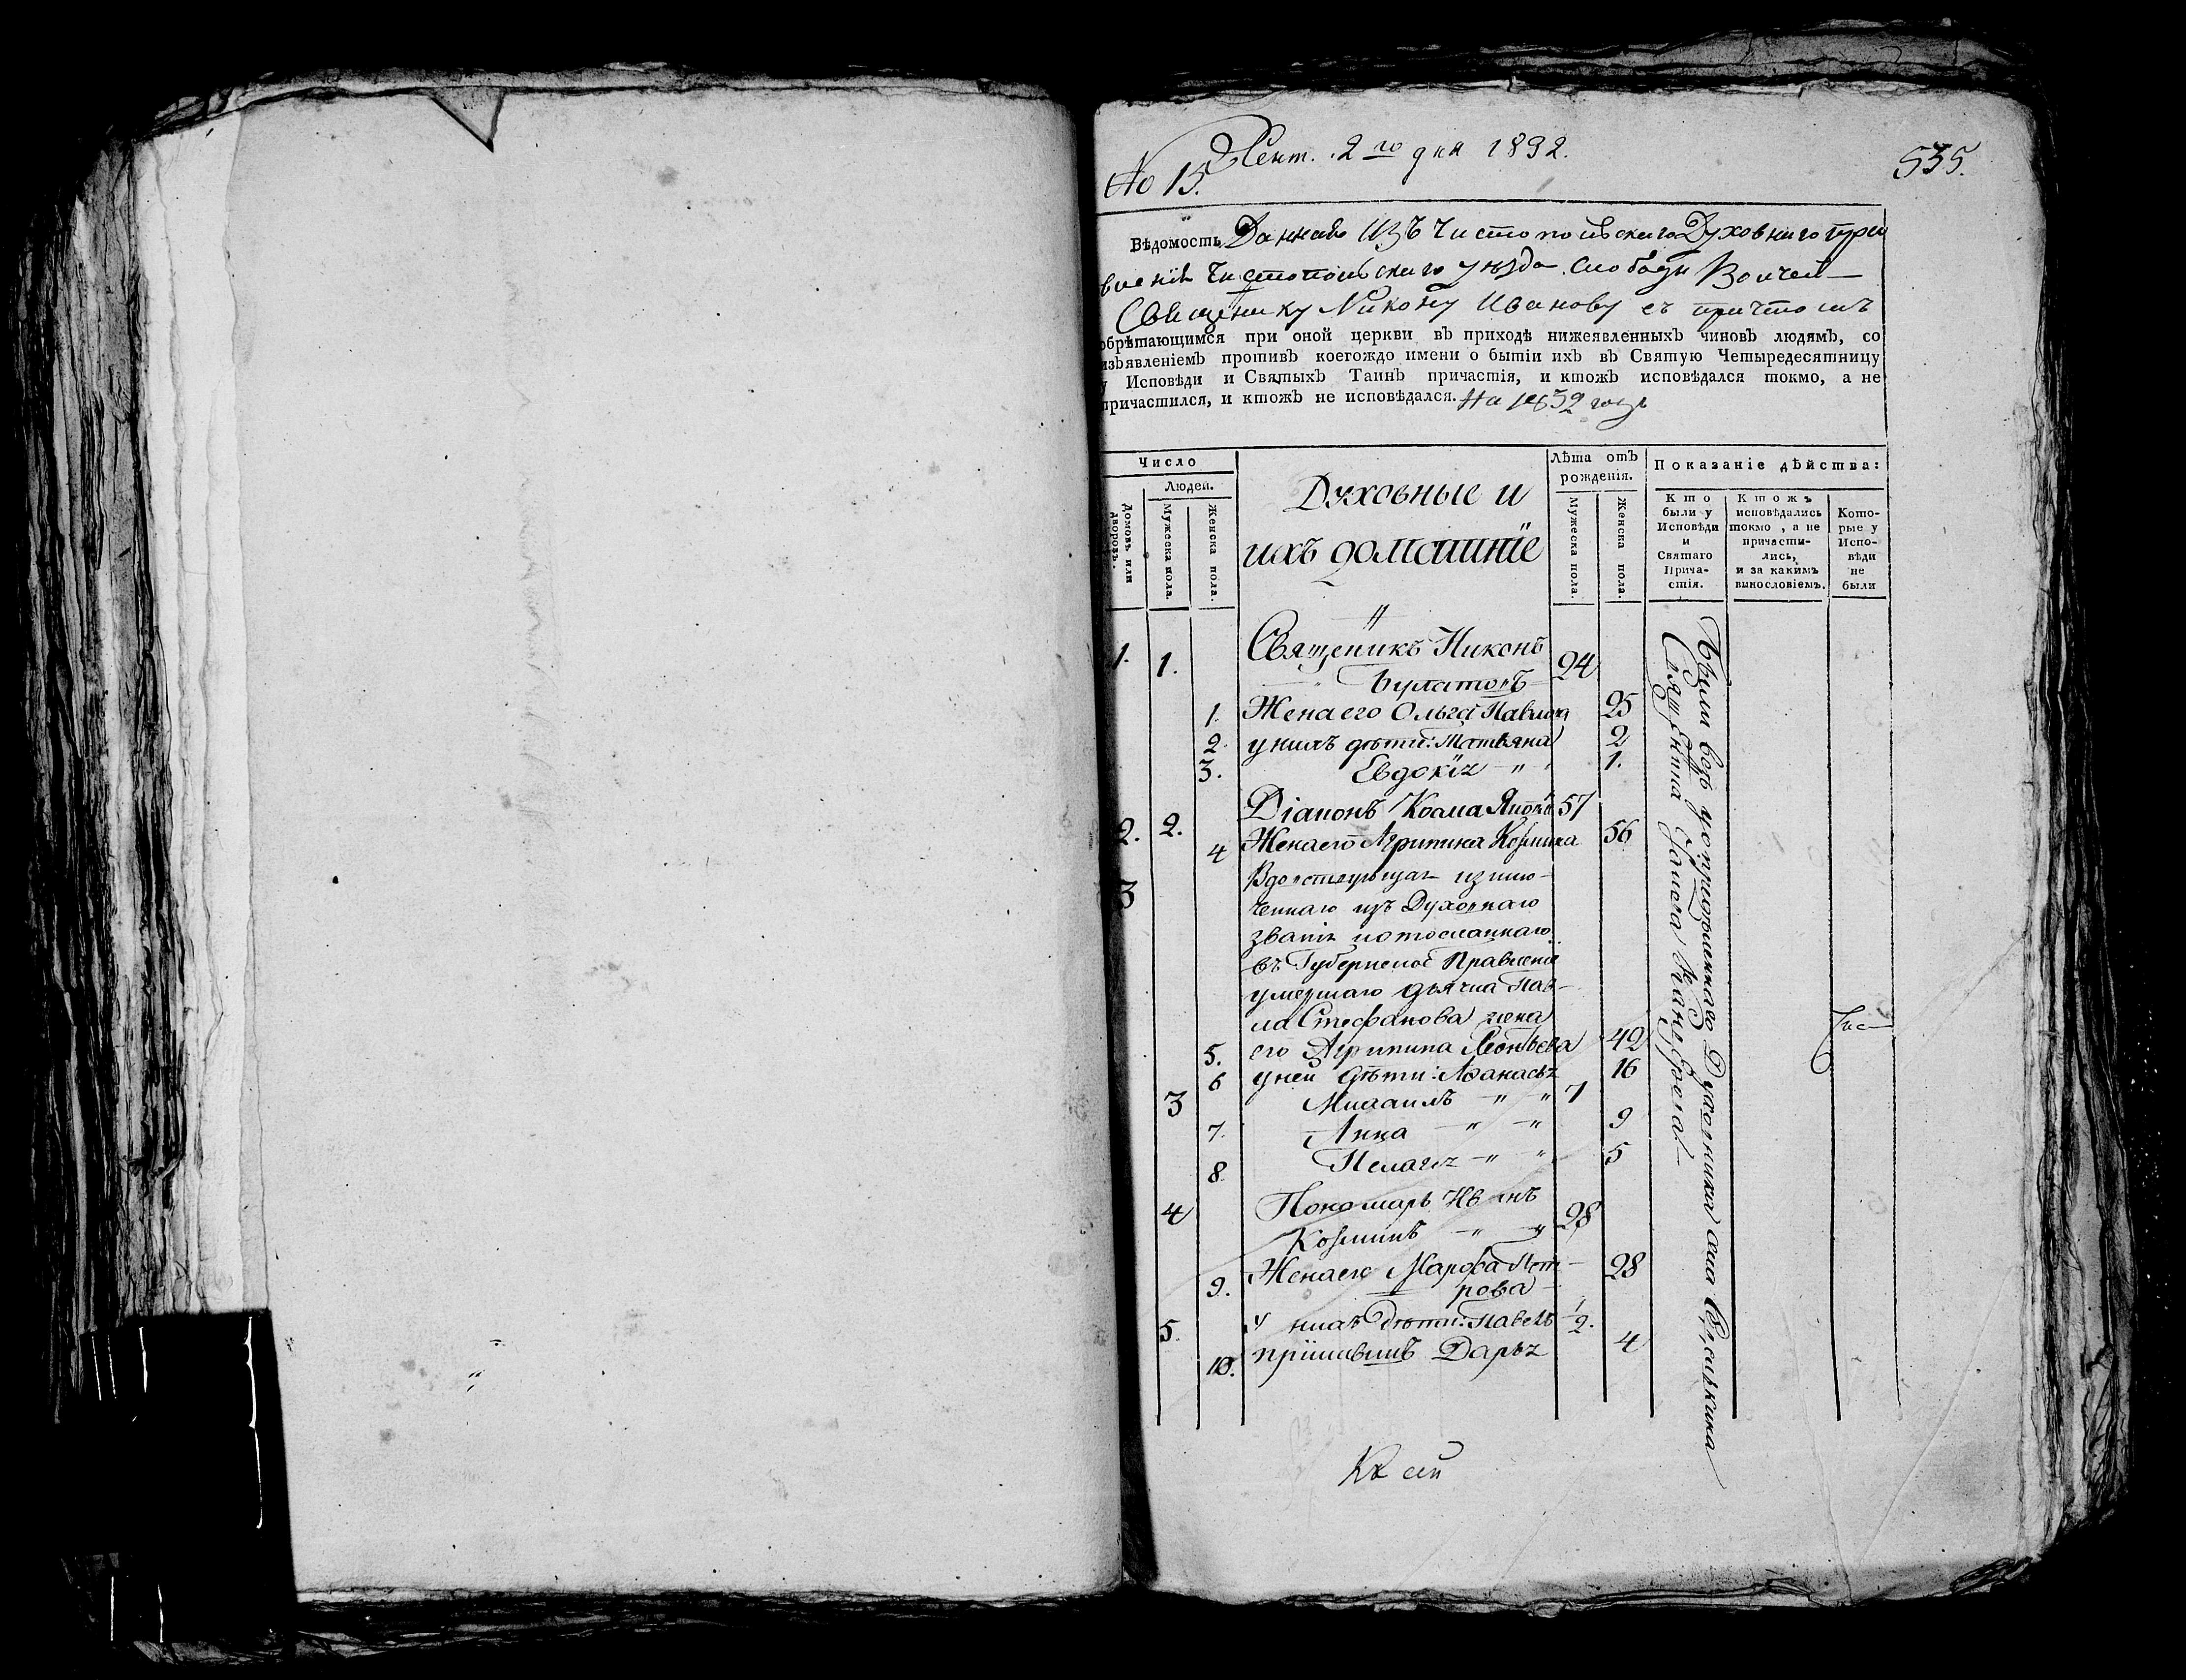 Сент. 2го дня 1832.
No 15.
535.
Вѣдомость Данная Изъ Чистопольскаго Духовнаго Прав
вленія Чистопольскаго уѣзда Слободы Волчей
Священику Никону Иванову съ причтомъ
обрѣтающимся при оной церкви въ приходѣ нижеявленныхъ чиновъ людямъ, со
изъявленіемъ противъ коегождо имени о бытіи ихъ въ Святую Четыредесятницу
у Исповѣди и Святыхъ Таинъ причастія, и ктожъ исповѣдался токмо, а не
причастился, и ктожъ не исповѣдался. На 1832 годъ
Число
Людей.
Домовъ или дворовъ.
Мужеска пола.
Женска пола.
Духовные и
ихъ домашніе
Лѣта отъ рожденія.
Мужеска пола.
Женска пола.
Показаніе дѣйства:
Кто были у Исповѣди и Святаго Причастія.
Ктожъ исповѣдались токмо, а не причастились, и за какимъ винословіемъ.
Которые у Исповѣди не были
1. 1. Священикъ Никонъ 24
Булатовъ
1. Жена его Ольга Павлова 25
2. у нихъ дѣти: Татьяна 2
3. Евдокія " 1.
2. 2. Діаконъ Козма Яковл 57
4 Жена его Агрипина Козмина 56
3 Вдовствующая изклю-
ченнаго изъ Духовнаго
званія и отосланнаго
въ Губернское Правленіе
умершаго дьячка Пав-
ла Стефанова жена
5. его Агрипина Леонтьева 42
6 у ней дѣти: Афанасья 16
3 Михаилъ " " 7
7. Анна " " 9
8. Пелагея " " 5
4 Пономарь Иванъ 28
Козминъ " "
9. Жена его Марфа Пет-
рова 28
5. у нихъ дѣти: Павелъ 1/2.
10. Дарья 4
Были всѣ у Духовника села
Священика